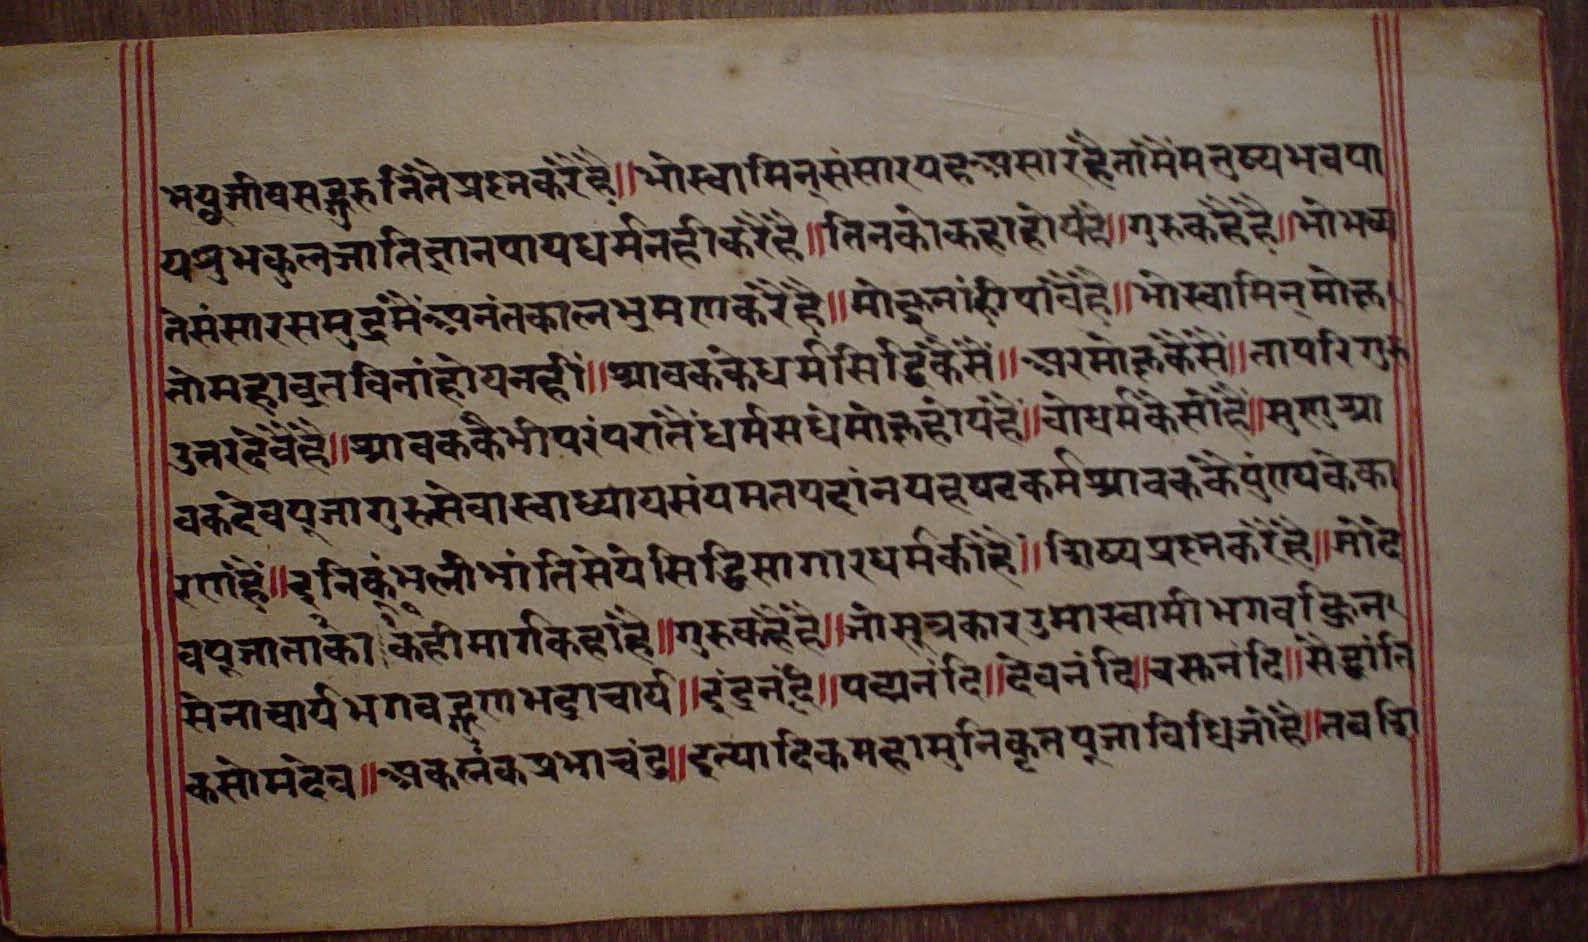 भव्यजीवसद्गुरुनितैप्रश्नकरैहै॥भोस्वामिन्संसारयहअसारहैतामैमनुष्यभवपा
यशुभकुलजातिज्ञानपायधर्मनहीकरैहै॥तिनकोकहाहोयहै॥गुरुकहैहै॥भोभव्य
तेसंसारसमुद्रमैंअनंतकालभ्रमणकरैहै॥मोक्षनांहीपावैहै॥भोस्वामिन्मोक्ष
तोमहाव्रतविनांहोयनहीं॥श्रावककेधर्मसिद्धिकैसैं॥अरमोक्षकैसैं॥तापरिगुरु
उत्तरदेवैहै॥श्रावककैभीपरंपरांतैंधर्मसधेमोक्षहोयहै॥वोधर्मकैसोहै॥सुणुश्रा
वकदेवपूजागुरुसेवास्वाध्यायसंयमतपदांनयहषटकर्मश्रावककैपुंण्यकेका
रणहै॥इनिकूंभलीभांतिसेयेसिद्धिसागारधर्मकीहै॥शिष्यप्रश्नकरैहै॥भोदे
वपूजाताका कहीमार्गकिहांहै॥गुरुकहैहै॥जोसूत्रकारउमास्वामीभगवज्जिन
सेनाचार्यभगवद्गुणभद्राचार्य॥इंद्रनंदि॥पद्मनंदि॥देवनंदि॥वसुनंदि॥सैद्धांति
कसोमदेव॥अकलंकप्रभाचंद्र॥इत्यादिकमहामुनिकृतपूजाविधिजोहै॥तवशि